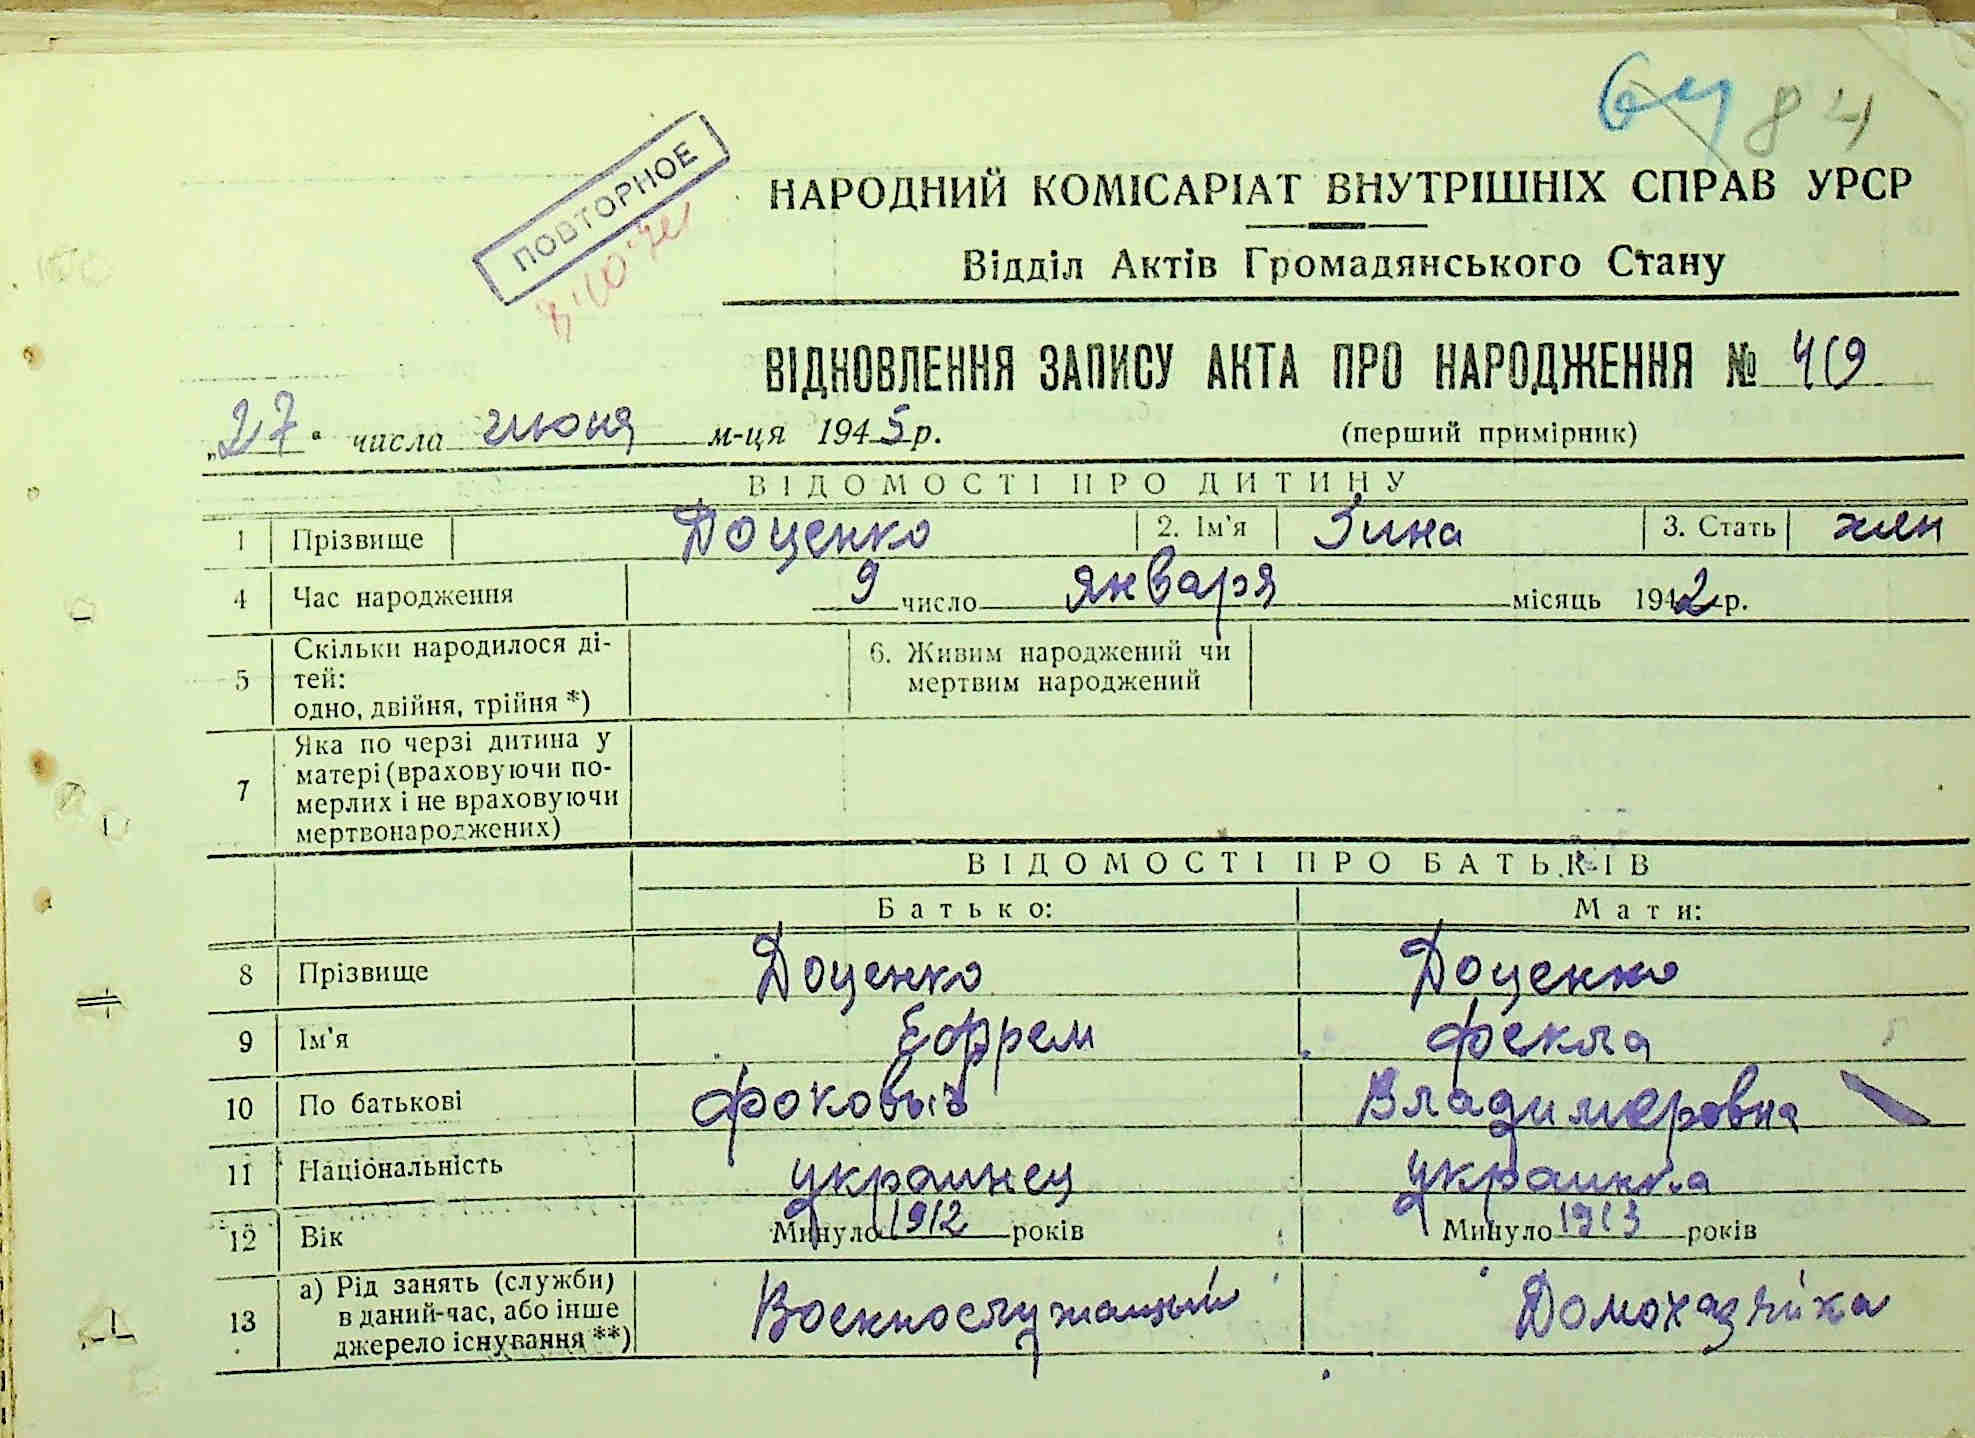 84
ПОВТОРНОЕ
НАРОДНИЙ КОМІСАРІАТ ВНУТРІШНІХ СПРАВ УРСР
Відділ Актів Громадянського Стану
ВІДНОВЛЕННЯ ЗАПИСУ АКТА ПРО НАРОДЖЕННЯ №
„27“ числа июня м-ця 1945 р. (перший примірник)
ВІДОМОСТІ ПРО ДИТИНУ
1 Прізвище Доценко 2. Ім'я Зина 3. Стать жен
4 Час народження 9 число января місяць 1942 р.
5 Скільки народилося ді-
тей:
одно, двійня, трійня *)
6. Живим народжений чи
мертвим народжений
7 Яка по черзі дитина у
матері (враховуючи по-
мерлих і не враховуючи
мертвонароджених)
ВІДОМОСТІ ПРО БАТЬКІВ
Батько: Мати:
8 Прізвище Доценко Доценко
9 Ім'я Ефрем Фекла
10 По батькові Фокович Владимировна
11 Національність украинец украинка
12 Вік Минуло 1912 років Минуло 1913 років
13 а) Рід занять (служби)
в даний час, або інше
джерело існування **)
Военнослужащий Домохазяйка